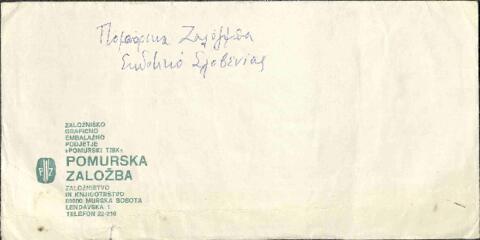 Πομούρσκα Ζαλόζμπα
Εκδοτικό Σλοβενίας
ZALOŽNIŠKO
GRAFIČNO
EMBALAŽNO
PODJETJE
»POMURSKI TISK«
POMURSKA
ZALOŽBA
ZALOŽNIŠTVO
IN KNJIGOTRŠTVO
69000 MURSKA SOBOTA
LENDAVSKA 1
TELEFON 22-210